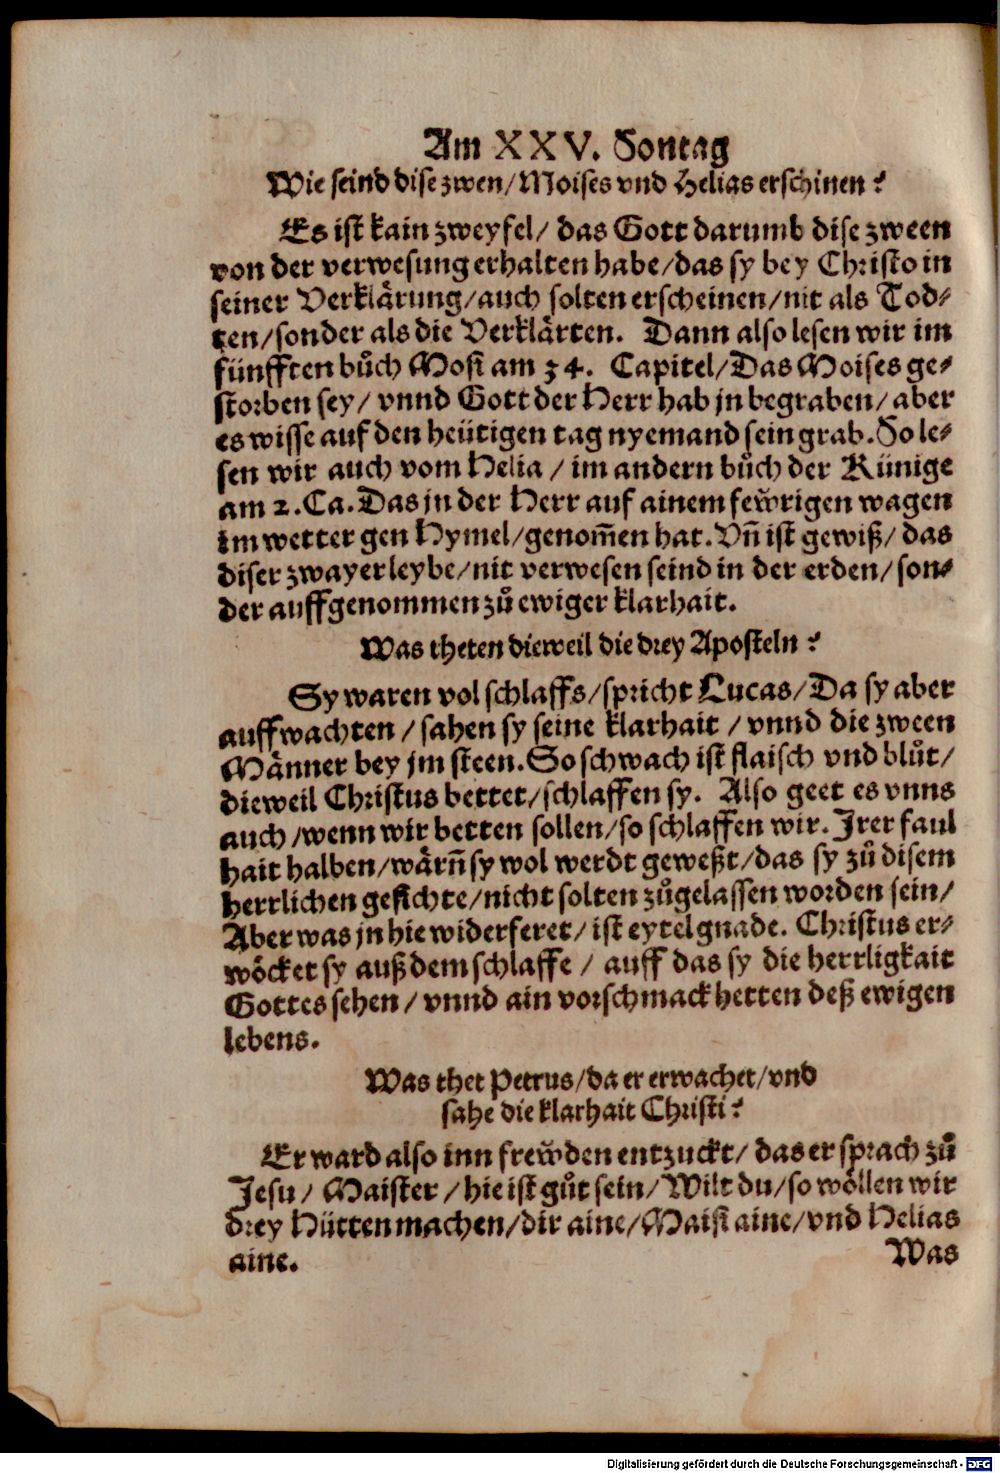 Am XXV. Sontag
Wie seind dise zwen/Moises vnd Helias erschinen?
Es ist kain zweyfel/ das Gott darumb dise zween
von der verwesung erhalten habe/das sy bey Christo in
seiner Verklärung/auch solten erscheinen/nit als Tod-
ten/sonder als die Verklärten. Dann also lesen wir im
fünfften bůch Mosi am 34. Capitel/Das Moises ge-
storben sey/ vnnd Gott der Herr hab jn begraben/ aber
es wisse auf den heütigen tag nyemand sein grab. So le-
sen wir auch vom Helia / im andern bůch der Künige
am 2. Ca. Das jn der Herr auf ainem feẅrigen wagen
im wetter gen Hymel/genom̃en hat. Vñ ist gewiß/ das
diser zwayer leybe/nit verwesen seind in der erden/ son-
der auffgenommen zů ewiger klarhait.
Was theten dieweil die drey Aposteln?
Sy waren vol schlaffs/spricht Lucas/Da sy aber
auffwachten / sahen sy seine klarhait / vnnd die zween
Männer bey jm steen. So schwach ist flaisch vnd blůt/
dieweil Christus bettet/schlaffen sy. Also geet es vnns
auch /wenn wir betten sollen/so schlaffen wir. Irer faul
hait halben/wärn̄ sy wol werdt geweßt/das sy zů disem
herrlichen gesichte/nicht solten zůgelassen worden sein/
Aber was jn hie widerferet/ ist eytel gnade. Christus er-
wöcket sy auß dem schlaffe / auff das sy die herrligkait
Gottes sehen / vnnd ain vorschmack hetten deß ewigen
lebens.
Was thet Petrus/da er erwachet/vnd
sahe die klarhait Christi?
Er ward also inn freẅden entzuckt/ das er sprach zů
Jesu/ Maister / hie ist gůt sein/Wilt du/so wöllen wir
drey Hütten machen/dir aine/Maisi aine/vnd Helias
aine.
Was
Digitalisierung gefördert durch die Deutsche Forschungsgemeinschaft - DFG